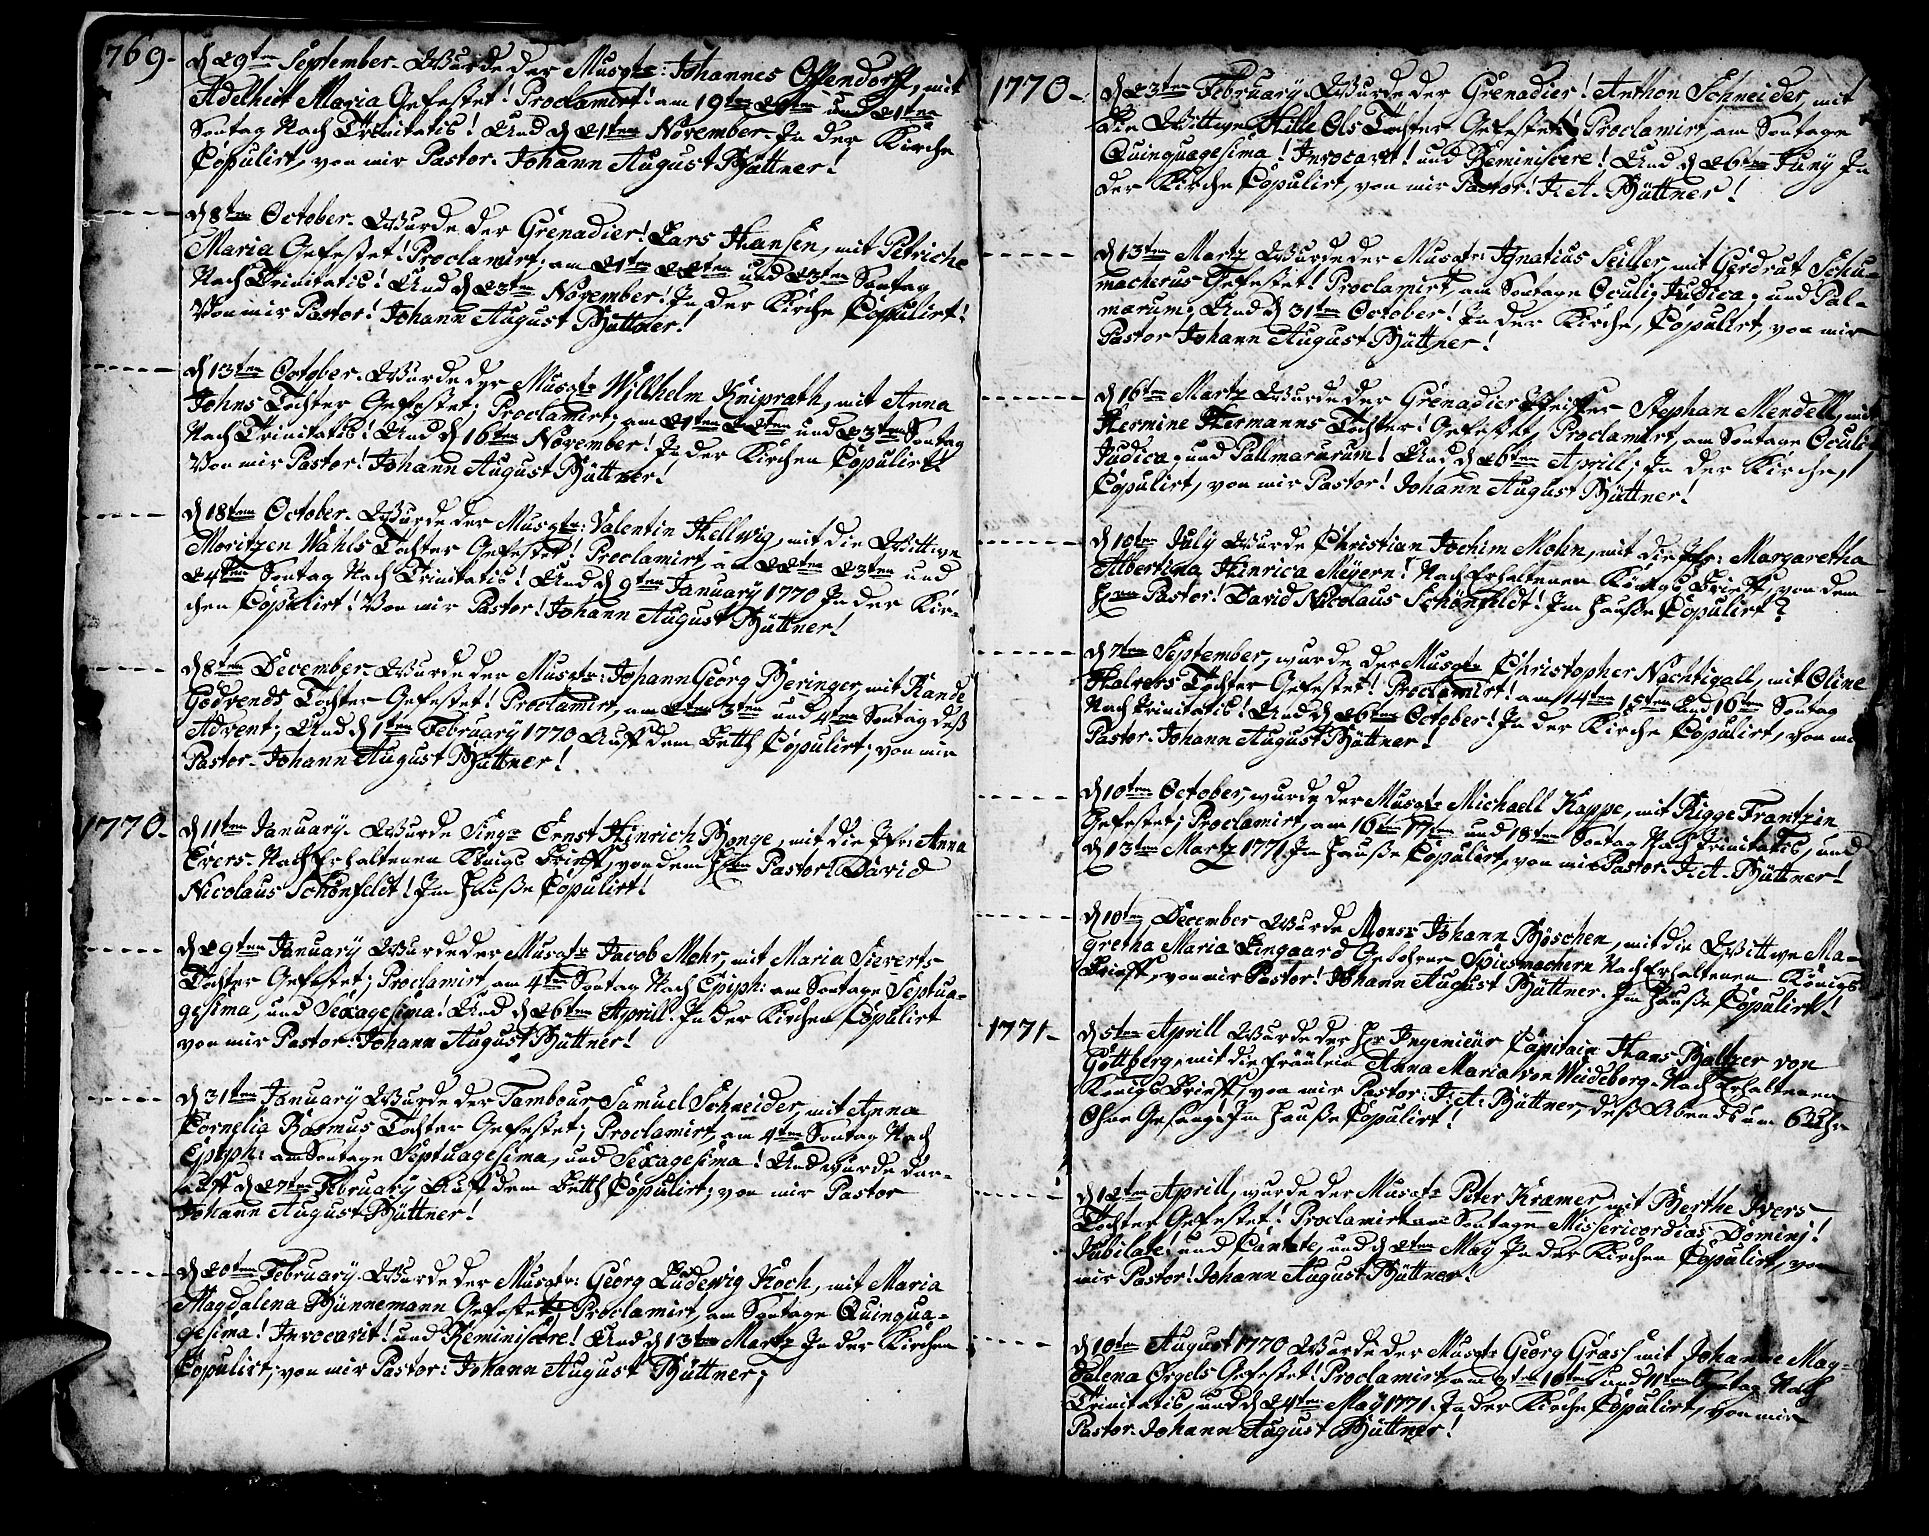 1769.
d 29ten September. Wurde der Musqtr: Johannes Offendorff, mit
Adelheit Maria Gefestet! Proclamirt! am 19ten 20ten und 21ten
Sontag Nach Trinitatis! Und d 21ten November. In der Kirche
Copulirt, von mir Pastor. Johann August Büttner!
d 8ten October. Wurde der Grenadier! Lars Hansen, mit Petriche
Maria Gefestet! Proclamirt; am 21ten 22ten und 23ten Sontag
Nach Trinitatis! Und d 23ten November! In der Kirche Copulirt!
Von mir Pastor! Johann August Büttner!
d 13ten October. Wurde der Musqtr Wilhelm Kniprath, mit Anna
Johns Tochter Gefestet; Proclamirt; am 21ten 22ten und 23ten Sontag
Nach Trinitatis! Und d 16ten November! In der Kirchen Copulirt!
Von mir Pastor! Johann August Büttner!
d 18ten October. Wurde der Musqtr: Valentin Hellwig, mit die Wittwe
Moritzen Wahls Tochter Gefestet! Proclamirt, am 22ten 23ten und
24ten Sontag Nach Trinitatis! Und d 9ten January 1770 In der Kir-
chen Copulirt! Von mir Pastor! Johann August Büttner!
d 8ten December. Wurde der Musqtr: Johann Georg Beringer, mit Rande
Godvends Tochter Gefestet! Proclamirt, am 2ten 3ten und 4ten Sontag deß
Advent; Und d 1ten February 1770 Auff dem Betth Copulirt; von mir
Pastor. Johann August Büttner!
1770.
d 11ten January. Wurde Singr Ernst Hinrich Bonge, mit die Jfr: Anna
Evers. Nach Erhaltenen Königs Brieff, von dem Hrn Pastor! David
Nicolaus Schönfeldt! Im Hauße Copulirt!
d 29ten January Wurde der Musqtr Jacob Mohr, mit Maria Siverts
Tochter Gefestet; Proclamirt, am 4ten Sontag Nach Epiph: am Sontage Septua-
gesima, und Sexagesima! Und d 26ten Aprill. In der Kirchen Copulirt
von mir Pastor: Johann August Büttner!
d 31ten January Wurde der Tambour Samuel Schneider, mit Anna
Cornelia Rasmus Tochter Gefestet; Proclamirt, am 4ten Sontag Nach
Epiph: am Sontage Septuagesima, und Sexagesima! Und wurde dar-
auff d 27ten February Auff dem Betth Copulirt; von mir Pastor
Johann August Büttner!
d 20ten February. Wurde der Musqtr: Georg Ludewig Koch, mit Maria
Magdalena Bünnemann Gefestet! Proclamirt, am Sontage Quinqua-
gesima! Invocavit! und Reminiscere! Und d 13ten Martz In der Kirchen
Copulirt; von mir Pastor: Johann August Büttner;
1770.
d 23ten February. Wurde der Grenadier! Anthon Schneider, mit
die Wittwe, Hille Ols Tochter Gefestet! Proclamirt, am Sontage
Quinquagesima! Invocavit! und Reminiscere! Und d 26ten Juny In
der Kirche Copulirt, von mir Pastor! J. A. Büttner!
d 13ten Martz Wurde der Musqtr Ignatius Seiller, mit Gerdrut Schu-
macherus Gefestet! Proclamirt, am Sontage Oculi; Judica; und Pal-
marum; Und d 31ten October! In der Kirche, Copulirt, von mir
Pastor Johann August Büttner!
d 16ten Martz Wurde der Grenadier Pfeiffer Stephan Mendell, mit
Hermine Hermanns Tochter! Gefestet, Proclamirt, am Sontage Oculi;
Judica; und Pallmarurum! Und d 26ten Aprill; In der Kirche,
Copulirt, von mir Pastor! Johann August Büttner!
d 10ten July Wurde Christian Jochim Mohn, mit die Jfr: Margaretha
Albertina Hinrica Meyern! Nach Erhaltenen Königs Brieff, von dem
Hrn Pastor! David Nicolaus Schönfeldt! Im Hauße Copulirt?
d 7ten September, wurde der Musqtr Christopher Nachtigall, mit Oline
Halvers Tochter Gefestet! Proclamirt! am 14ten 15ten und 16ten Sontag
Nach Trinitatis! Und d 26ten October! In der Kirche Copulirt, von mir
Pastor. Johann August Büttner!
d 10ten October, wurde der Musqtr Michaell Kappe, mit Rigge Frantzin
Gefestet; Proclamirt, am 16ten 17ten und 18ten Sontag Nach Trinitatis, und
d 13ten Martz 1771 Im Hauße Copulirt, von mir Pastor. J. A. Büttner!
d 10ten December Wurde Monsr Johann Böschen, mit die Wittwe Ma-
gretha Maria Lengaard Gebohrne Spiesmachern Nach Erhaltenen Königs
Brieff, von mir Pastor! Johann August Büttner. Im Hauße Copulirt!
1771.
d 5ten Aprill Wurde der Hr Ingenieur Capitain Hans Baltzer von
Göttberg, mit die Fräulein Anna Maria von Weideborg. Nach Erhaltenen
Königs Brieff, von mir Pastor: J. A. Büttner, deß Abends um 6 Uhr
Ohne Gesang! Im Hauße Copulirt!
d 12ten Aprill, wurde der Musqtr Peter Kramer, mit Berthe Ivers
Tochter Gefestet! Proclamirt am Sontage Missericordias Domini!
Jubilate! und Cantate, und d 2ten May In der Kirchen Copulirt, von
mir Pastor! Johann August Büttner!
d 10ten August 1770 Wurde der Musqtr Georg Grass mit Johanne Mag-
dalena Orgels Gefestet! Proclamirt am 9ten 10ten und 11ten Sontag Nach
Trinitatis, und d 24ten May 1771. In der Kirche Copulirt, von mir
Pastor. Johann August Büttner!